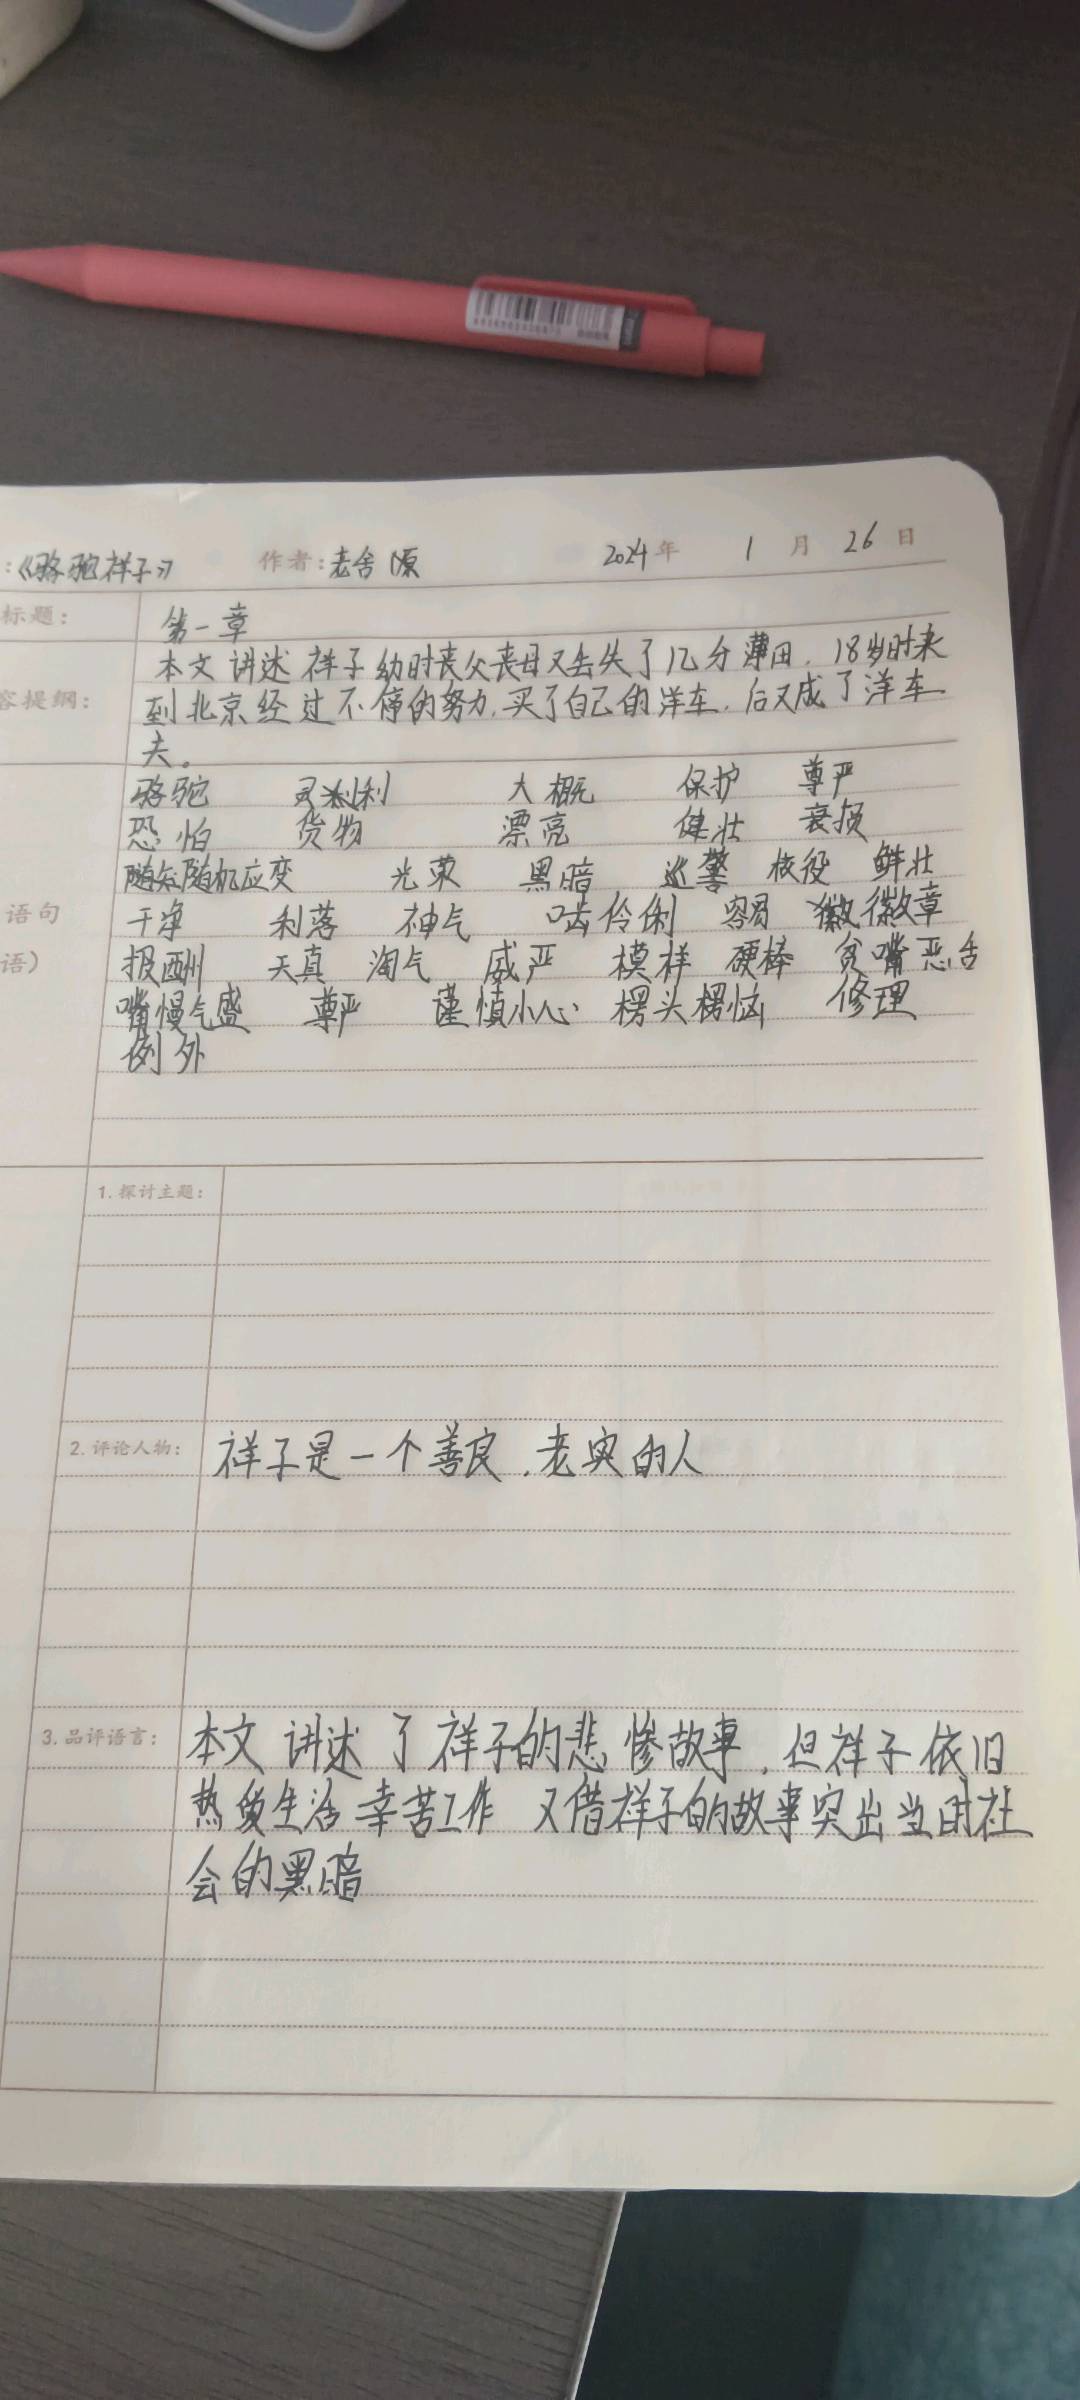 :《骆驼祥子》 作者:老舍 2024年 1月 26日
标题: 第一章
本文讲述祥子幼时丧父丧母又丢失了几分薄田，18岁时来
容提纲: 到北京经过不停的努力,买了自己的洋车,后又成了洋车
夫。
骆驼 大概 保护 尊严
恐怕 货物 漂亮 健壮 衰损
随机应变 光荣 黑暗 巡警 鲜壮
语句 干净 利落 神气 伶俐 容易 徽章
语) 报酬 天真 淘气 威严 模样 硬棒 贫嘴恶舌
嘴慢气盛 尊严 谨慎小心 楞头楞恼 修理
例外
1.探讨主题:
2.评论人物: 祥子是一个善良,老实的人
3.品评语言: 本文讲述了祥子的悲惨故事,但祥子依旧
热爱生活幸苦工作 又借祥子的故事突出当时社
会的黑暗